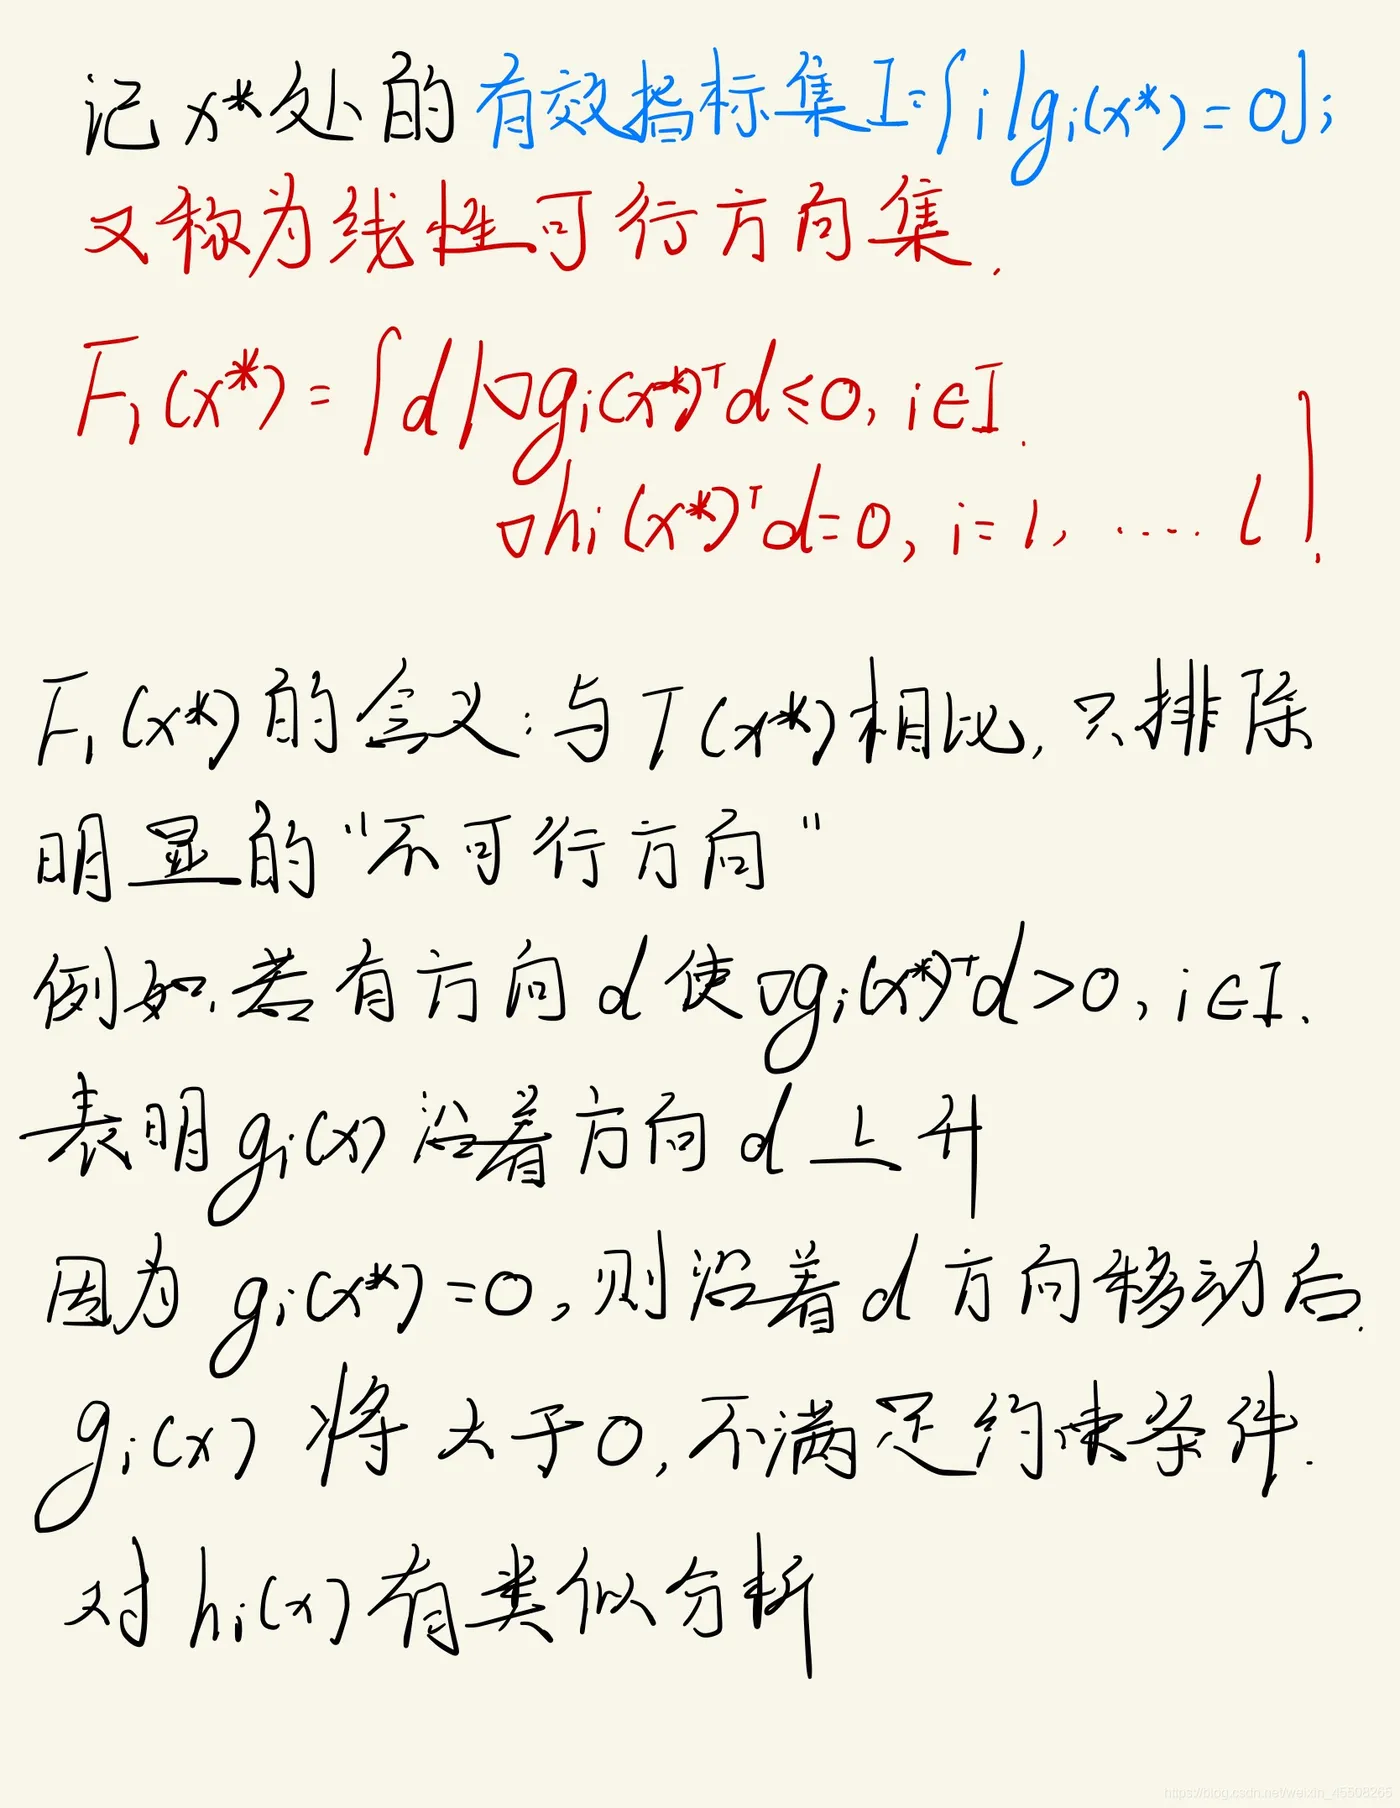 记 x*处的有效指标集I={i|gᵢ(x*)=0};
又称为线性可行方向集.
F₁(x*)={d|∇gᵢ(x*)ᵀd≤0, i∈I.
∇hᵢ(x*)ᵀd=0, i=1, ····· l}.
F₁(x*)的含义:与T(x*)相比,只排除
明显的"不可行方向"
例如,若有方向d使∇gᵢ(x*)ᵀd>0, i∈I.
表明gᵢ(x)沿着方向d上升
因为 gᵢ(x*)=0,则沿着d方向移动后.
gᵢ(x)将大于0,不满足约束条件.
对hᵢ(x)有类似分析
https://blog.csdn.net/weixin_45508265